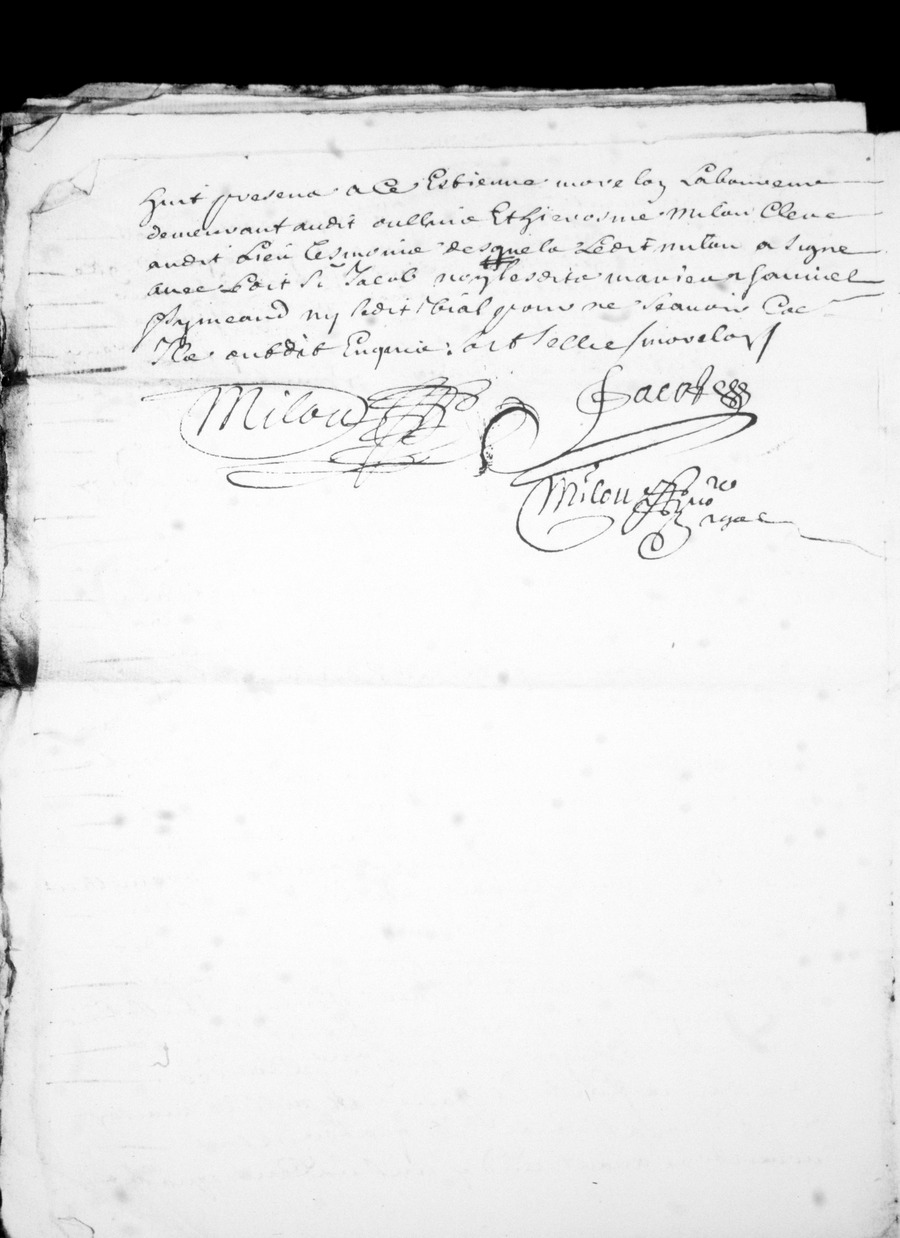 huit presens a Ce Estienne morelon Laboureur
demeurant audit oulleins Et hierosme Milou Clerc
audit Lieu tesmoins desquels Ledit milou a signe
avec Ledit Sr Jacob non lesdits marieur Samuel
Peymeaud ny ledit bial pour ne scavoir
Ils ont dit Enquis
Milou
Jacob
Milou